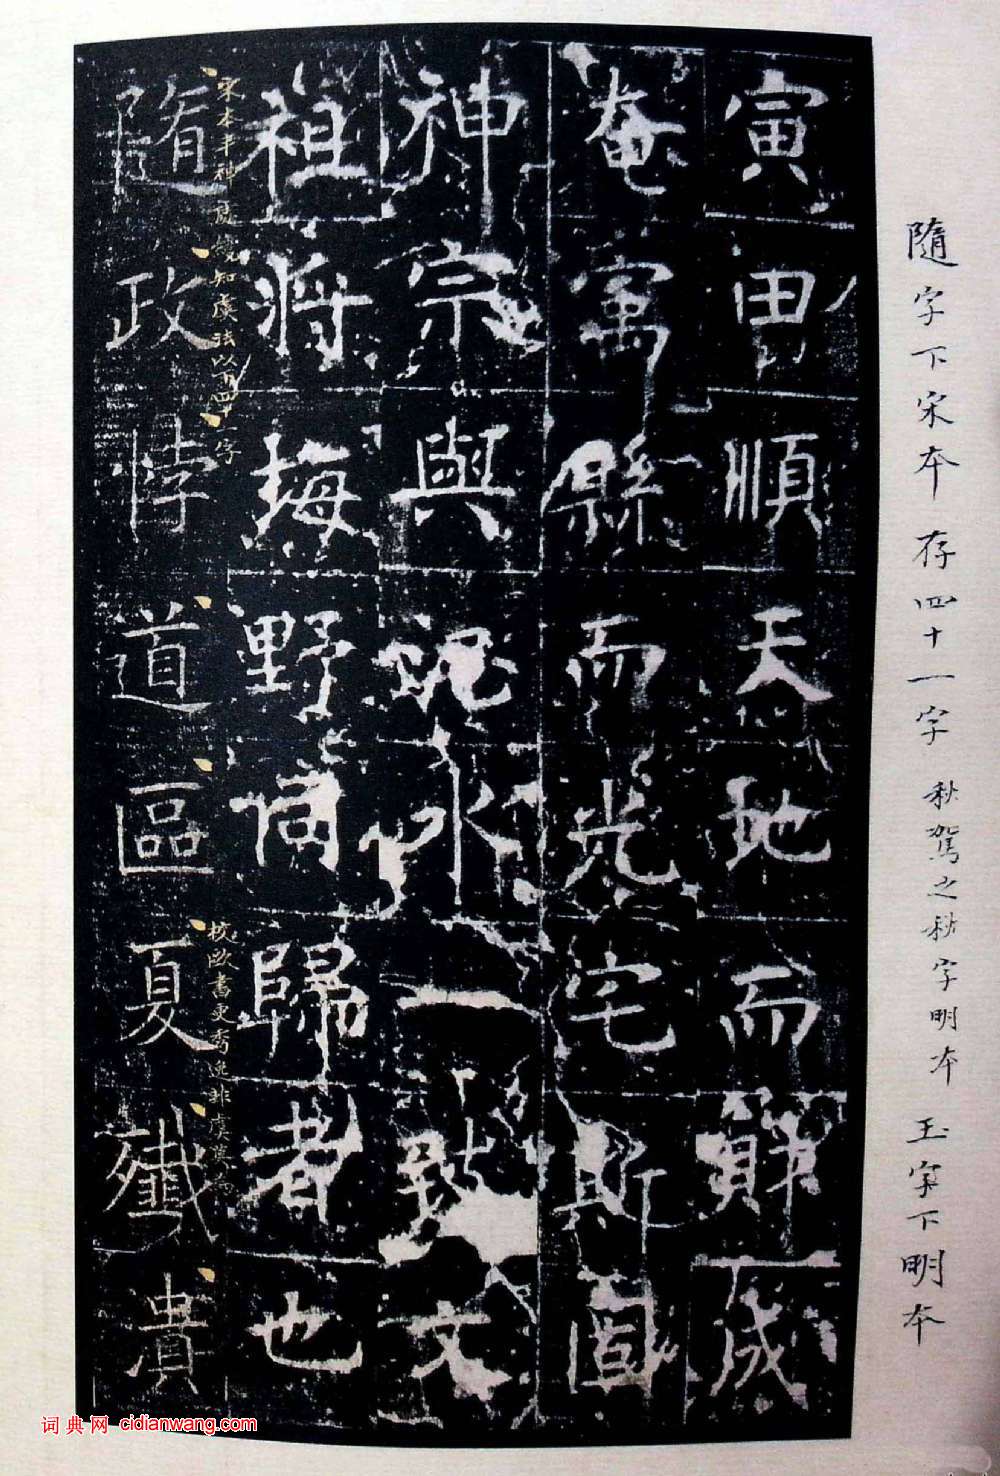 隨字下宋本存四十一字 秋駕之秋字明本 玉字下明本
寅由順天地而財成
奄寓縣而光宅斯固
神宗與水一致文
祖將坶野同歸者也
宋本丰神知虞法以下四十字
校歐書更秀逸非虞莫
隨政悖道區夏殲貴
词典网 cidianwang.com